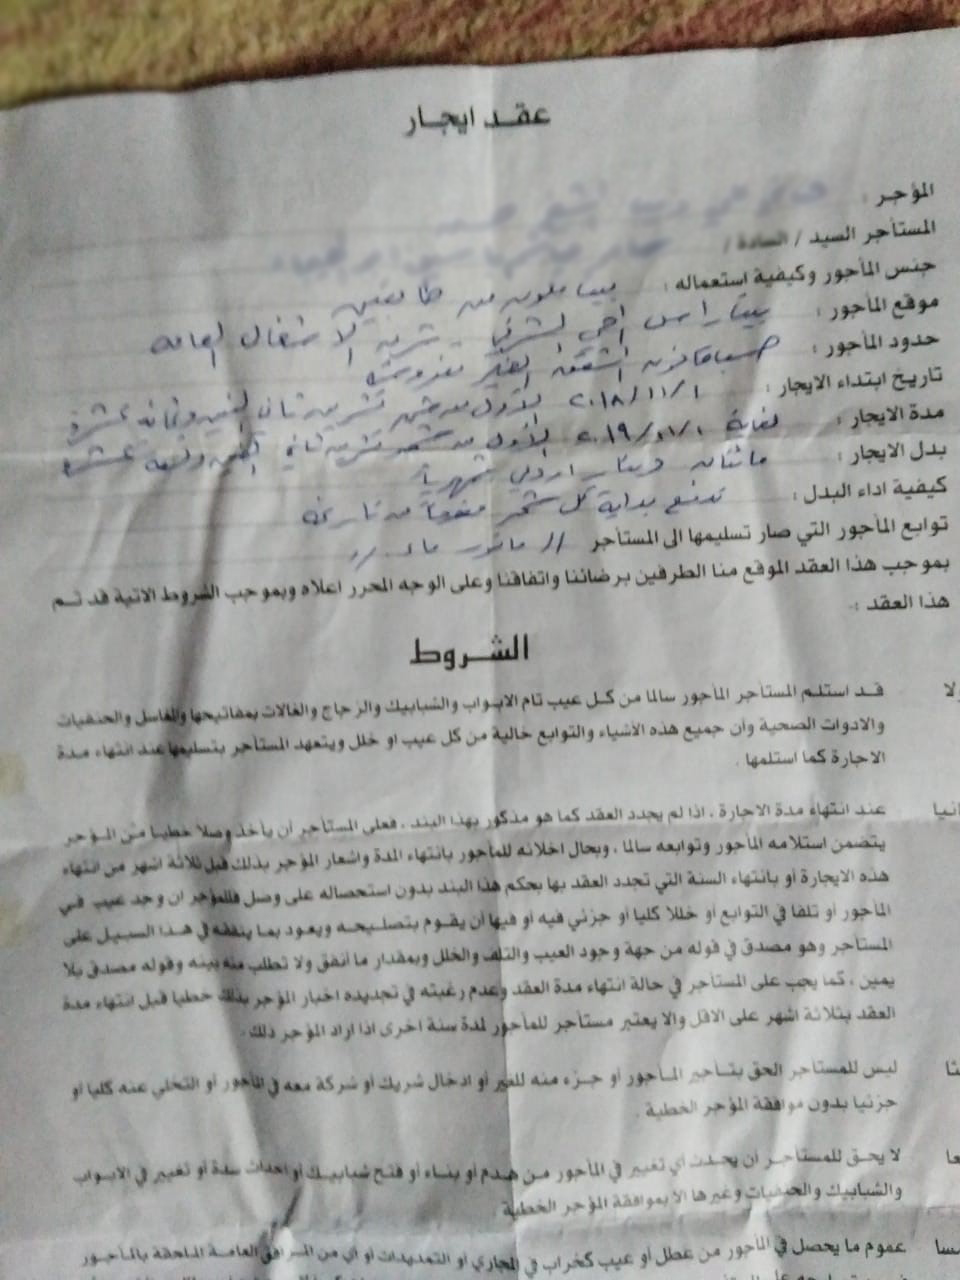 عقد ايجار
المؤجر :
المستأجر السيد / السادة /
جنس المأجور وكيفية استعماله : بيت مكون من طابقين
موقع المأجور :
حدود المأجور :
تاريخ ابتداء الايجار : ٢٠١٨/١١/١ الأول من شهر تشرين ثاني الفين وثمانه عشرة
مدة الايجار : لغاية
بدل الايجار : مائتان دينار اردني شهرياً
كيفية اداء البدل : تدفع بداية كل شهر مقدماً من تاريخه
توابع المأجور التي صار تسليمها الى المستأجر
بموجب هذا العقد الموقع منا الطرفين برضائنا واتفاقنا وعلى الوجه المحرر اعلاه وبموجب الشروط الاتية قد تم
هذا العقد :
الشروط
ولا قد استلم المستأجر المأجور سالما من كل عيب تام الابواب والشبابيك والزجاج والغالات بمفاتيحها والمغاسل والحنفيات
والادوات الصحية وأن جميع هذه الأشياء والتوابع خالية من كل عيب او خلل ويتعهد المستأجر بتسليمها عند انتهاء مدة
الاجارة كما استلمها .
انيا عند انتهاء مدة الاجارة ، اذا لم يجدد العقد كما هو مذكور بهذا البند ، فعلى المستأجر أن يأخذ وصلا خطيا من المؤجر
يتضمن استلامه المأجور وتوابعه سالما ، وبحال اخلائه للمأجور بانتهاء المدة واشعار المؤجر بذلك قبل ثلاثة اشهر من انتهاء
هذه الايجارة أو بانتهاء السنة التي تجدد العقد بها بحكم هذا البند بدون استحصاله على وصل فللمؤجر ان وجد عيب في
المأجور أو تلفا في التوابع أو خللا كليا أو جزئي فيه او فيها أن يقوم بتصليحه ويعود بما ينفقه في هذا السبيل على
المستأجر وهو مصدق في قوله من جهة وجود العيب والتلف والخلل وبمقدار ما أنفق ولا تطلب منه بينه وقوله مصدق بلا
يمين ، كما يجب على المستأجر في حالة انتهاء مدة العقد وعدم رغبته في تجديده اخبار المؤجر بذلك خطيا قبل انتهاء مدة
العقد بثلاثة اشهر على الاقل والا يعتبر مستأجر للمأجور لمدة سنة اخرى اذا اراد المؤجر ذلك .
ثا ليس للمستأجر الحق بتأجير المأجور أو جزء منه للغير أو ادخال شريك أو شركة معه في المأجور أو التخلي عنه كليا أو
جزئيا بدون موافقة المؤجر الخطية .
عا لا يحق للمستأجر أن يحدث أي تغيير في المأجور من هدم أو بناء أو فتح شبابيك أو احداث سدة أو تغيير في الابواب
والشبابيك والحنفيات وغيرها الا بموافقة المؤجر الخطية
مسا عموم ما يحصل في المأجور من عطل أو عيب كخراب في المجاري أو التمديدات او أي من المرافق العامة الملحقة بالمأجور